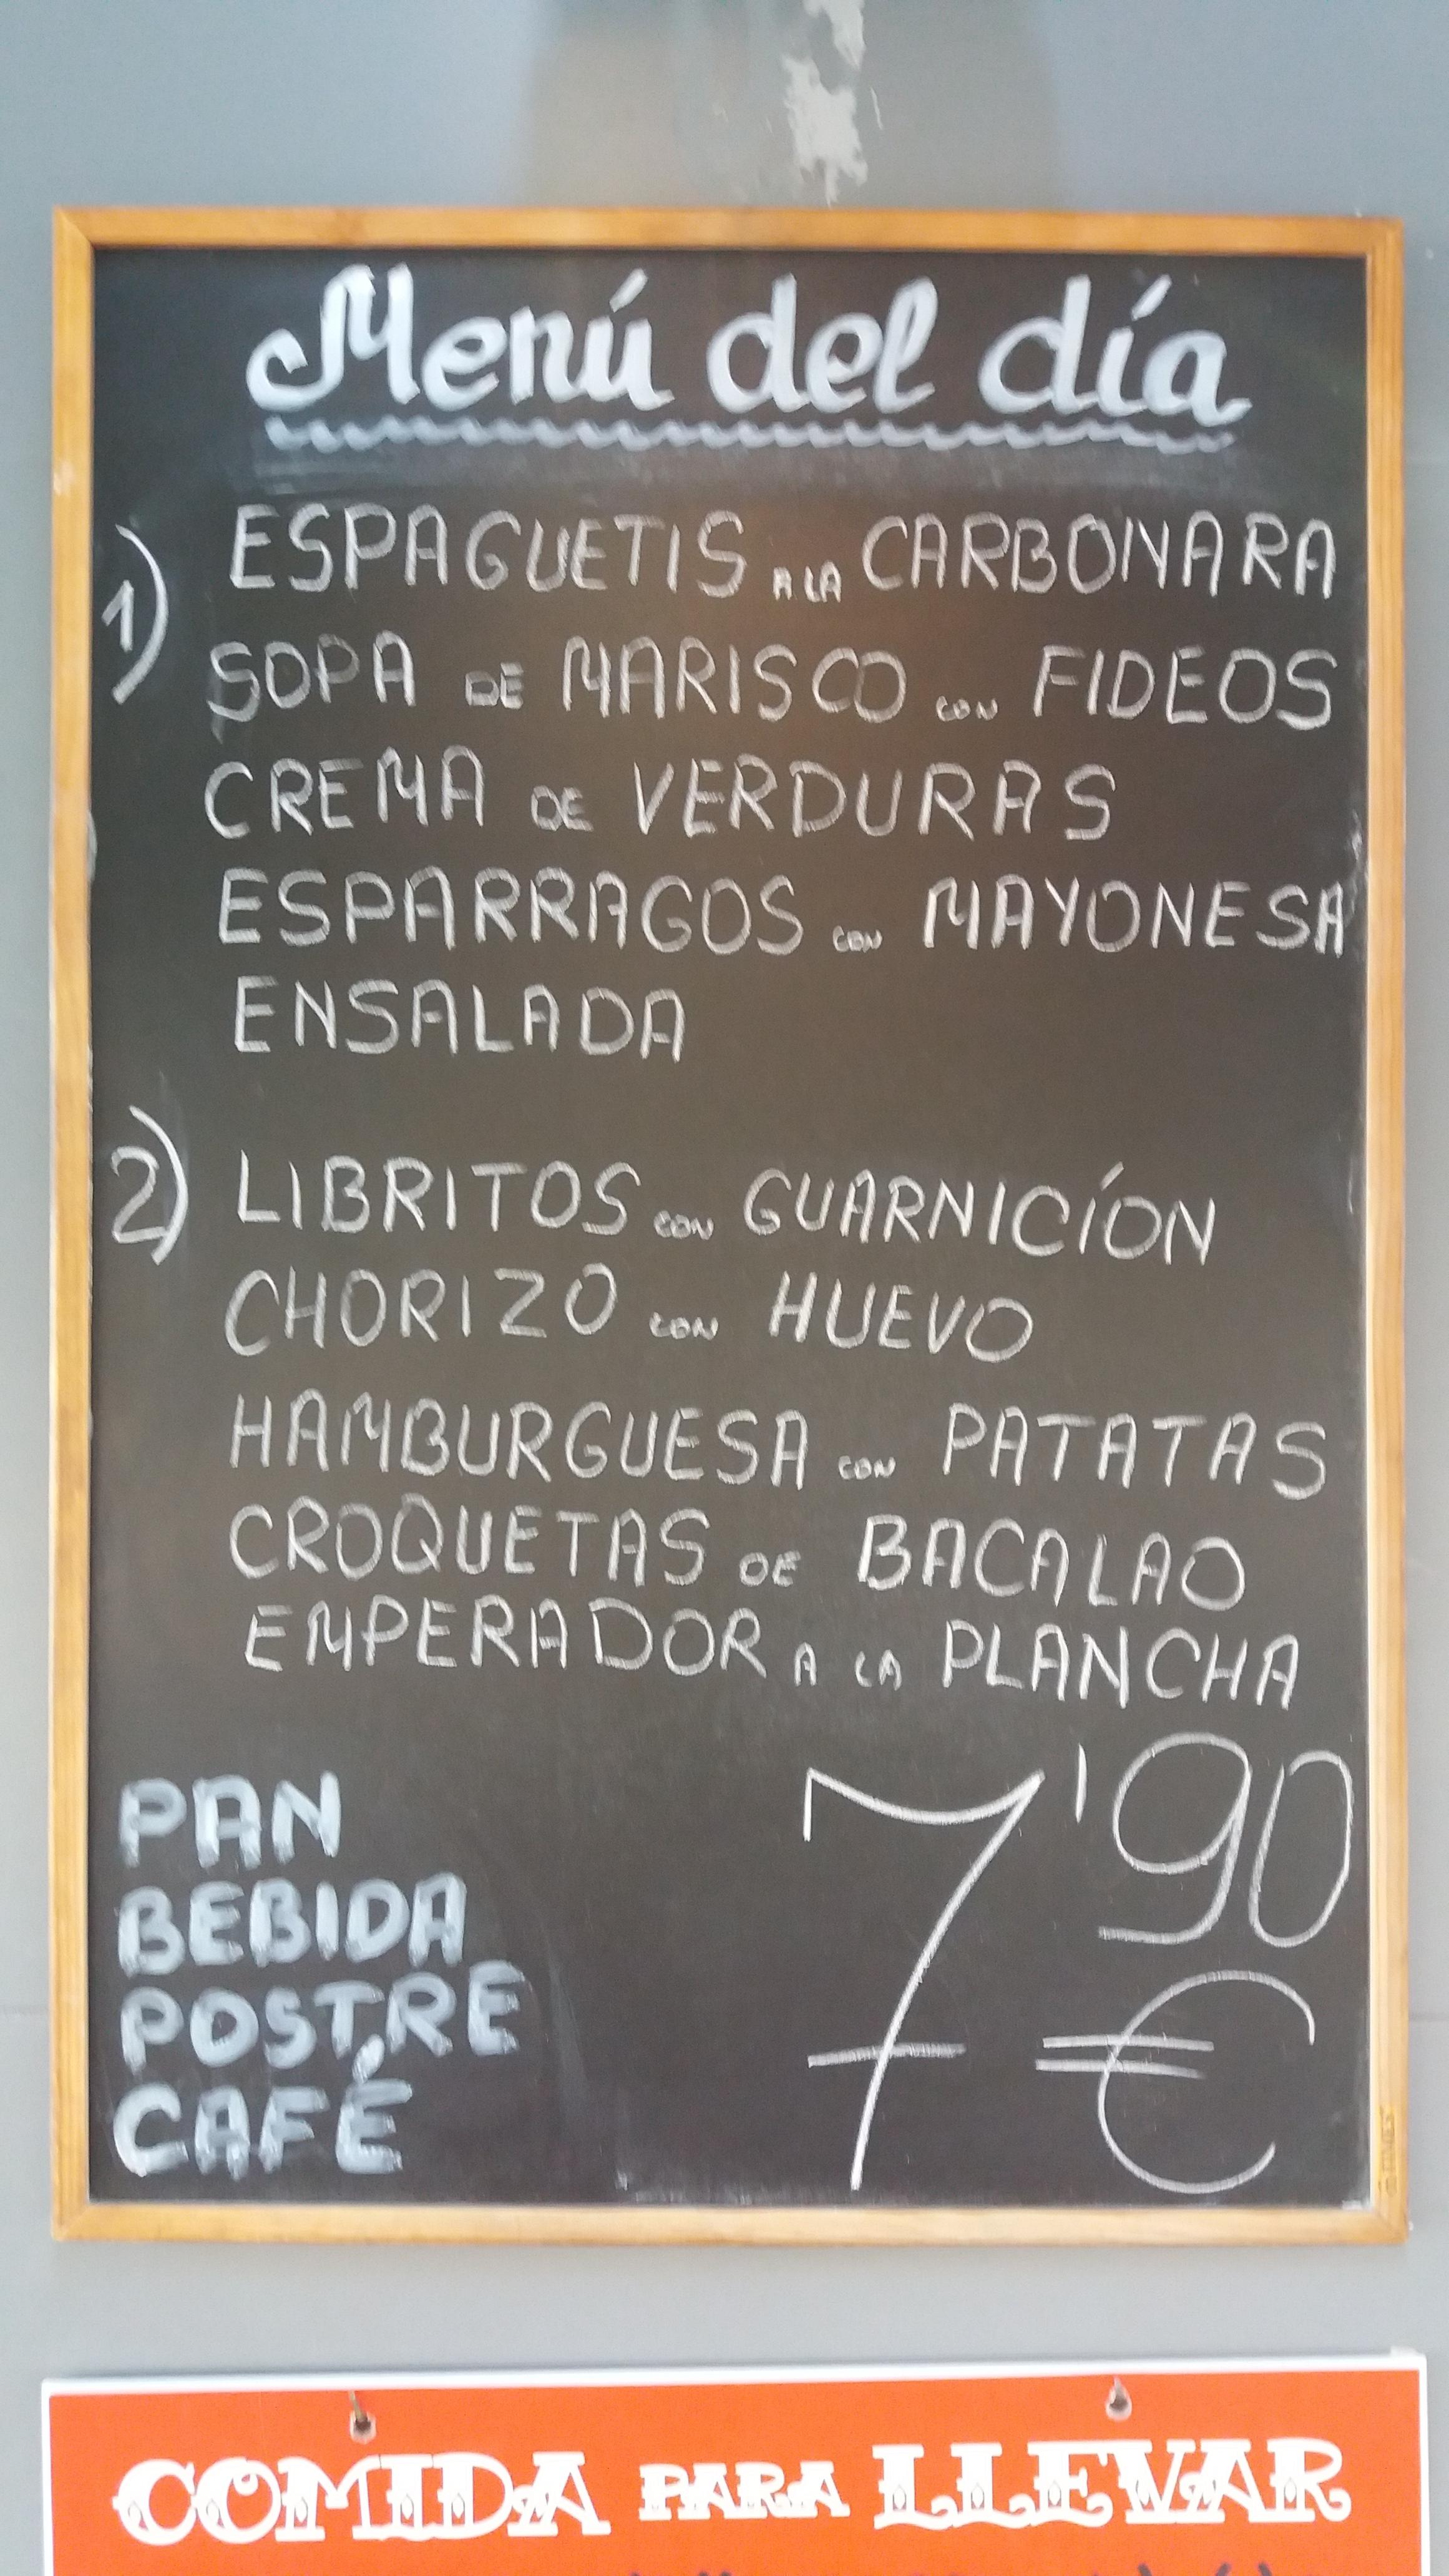 Menú del día
1) ESPAGUETIS A LA CARBONARA
SOPA DE MARISCO CON FIDEOS
CREMA DE VERDURAS
ESPARRAGOS CON MAYONESA
ENSALADA
2) LIBRITOS CON GUARNICÍON
CHORIZO CON HUEVO
HAMBURGUESA CON PATATAS
CROQUETAS DE BACALAO
EMPERADOR A LA PLANCHA
PAN
BEBIDA
POSTRE
CAFÉ
7'90 €
COMIDA PARA LLEVAR